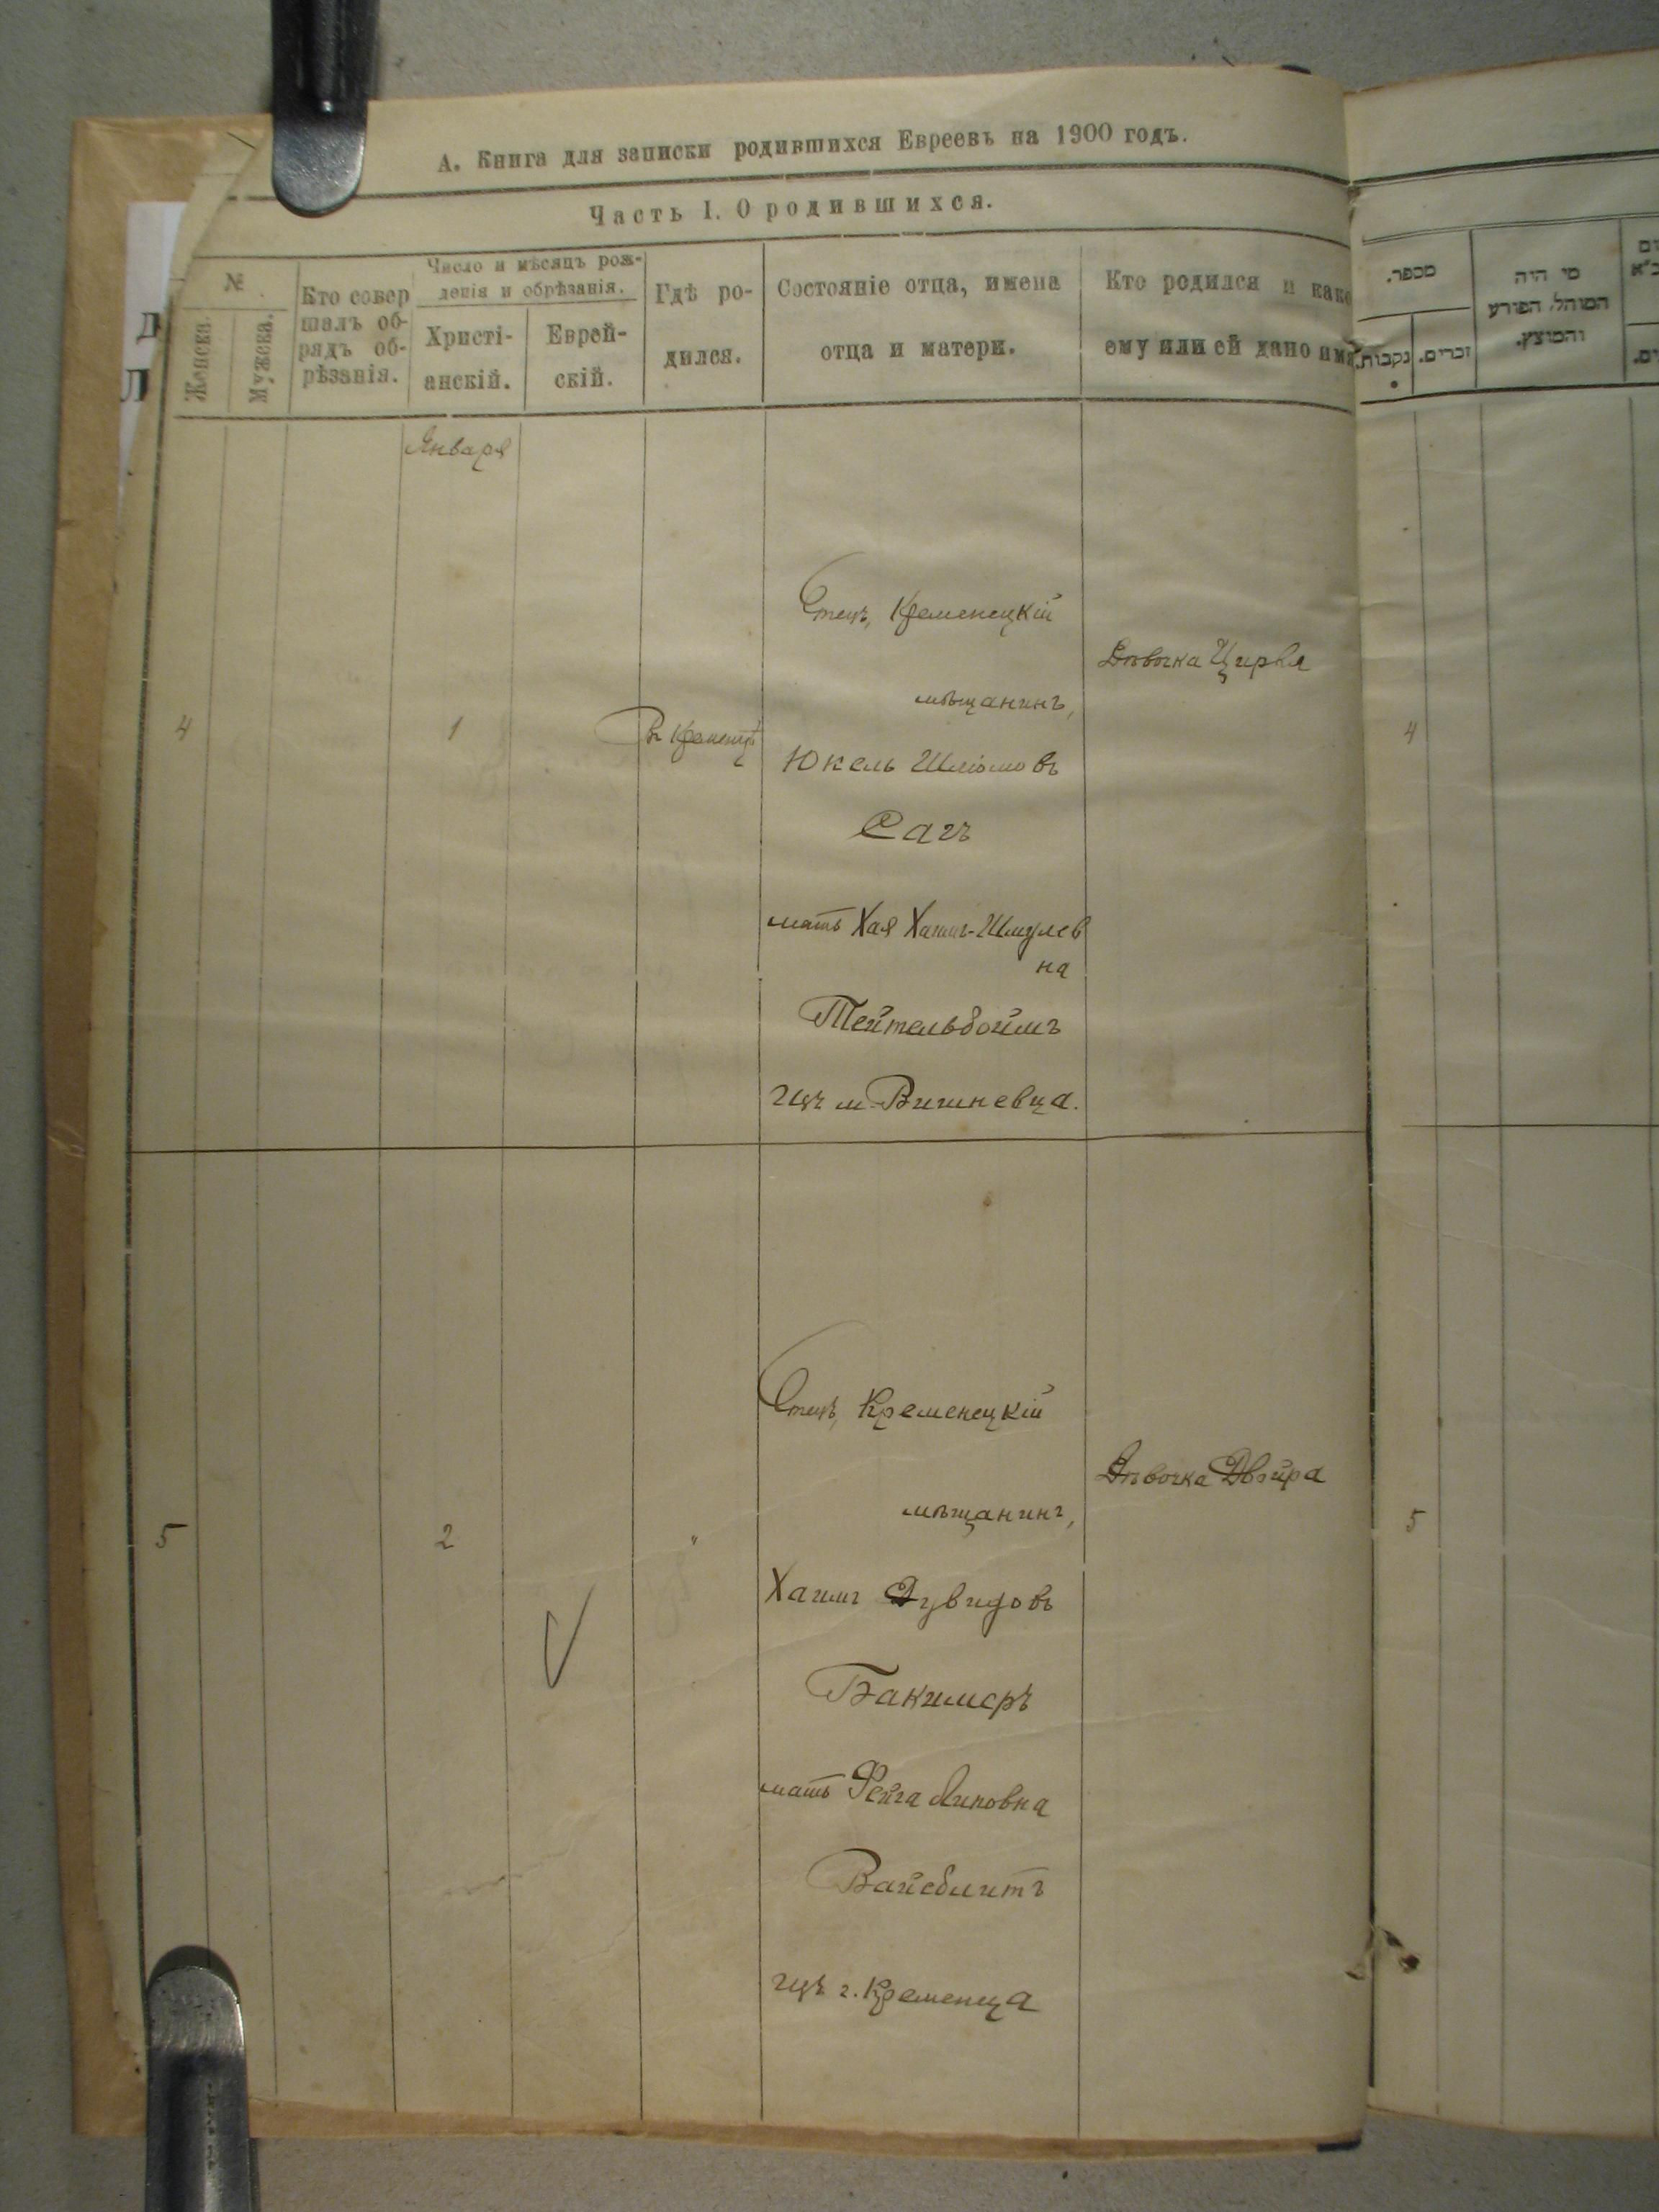 А. Книга для записки родившихся Евреевъ на 1900 годъ.
Часть I. О родившихся.
№
Женска.
Мужска.
Кто совер
шалъ об-
рядъ об-
рѣзанія.
Число и мѣсяцъ рож-
денія и обрѣзанія.
Христі-
анскій.
Еврей-
скій.
Гдѣ ро-
дился.
Состояніе отца, имена
отца и матери.
Кто родился и како
ему или ей дано имя
Января
4
1
въ Кременцѣ
Отецъ, Кременецкій
мѣщанинъ,
Юкель Шліомовъ
Сагъ
мать Хая Хаимъ-Шмулев
на
Тейтельбоймъ
изъ м. Вишневца.
Дѣвочка Цирля
5
2
"
Отецъ, Кременецкій
мѣщанинъ,
Хаимъ Дувидовъ
Бакимеръ
мать Фейга Липовна
Вайсблитъ
изъ г. Кременца
Дѣвочка Двойра
מספר.
נקבות.
זכרים.
מי היה
המוהל, הפורע
והמוצץ.
4
5